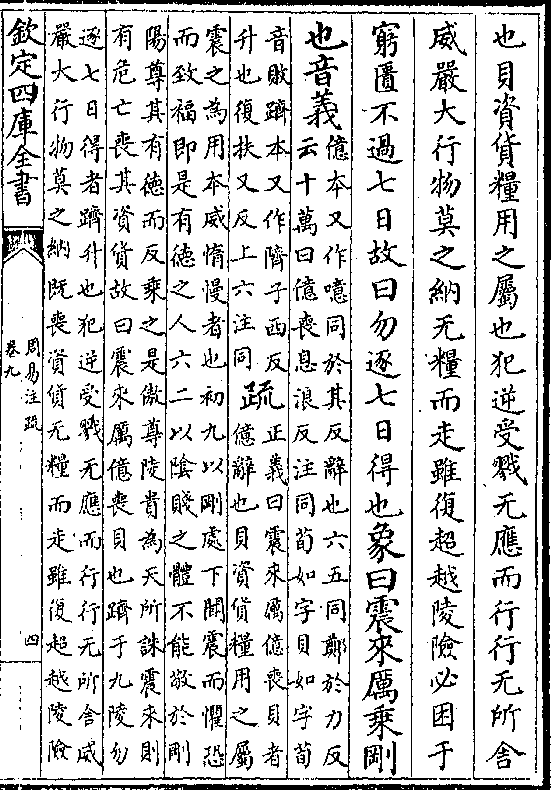 也貝資貨糧用之屬也犯逆受戮无應而行行无所舍
威嚴大行物莫之納无糧而走雖復超越陵險必困于
窮匱不過七日故曰勿逐七日得也象曰震來厲乗剛
也音義
億本又作噫同於其反辭也六五同鄭於力反
云十萬曰億喪息浪反注同荀如字貝如字荀
音敗躋本又作隮子西反
升也復扶又反上六注同
疏
正義曰震來厲億喪貝者
億辭也貝資貨糧用之屬
震之為用本威惰慢者也初九以剛處下聞震而懼恐
而致福即是有徳之人六二以隂賤之體不能敬於剛
陽尊其有徳而反乗之是傲尊陵貴為天所誅震來則
有危亡喪其資貨故曰震來厲億喪貝也躋于九陵勿
逐七日得者躋升也犯逆受戮无應而行行无所舍威
嚴大行物莫之納既喪資貨无糧而走雖復超越陵險
欽定四庫全書
周易注疏
卷九
四